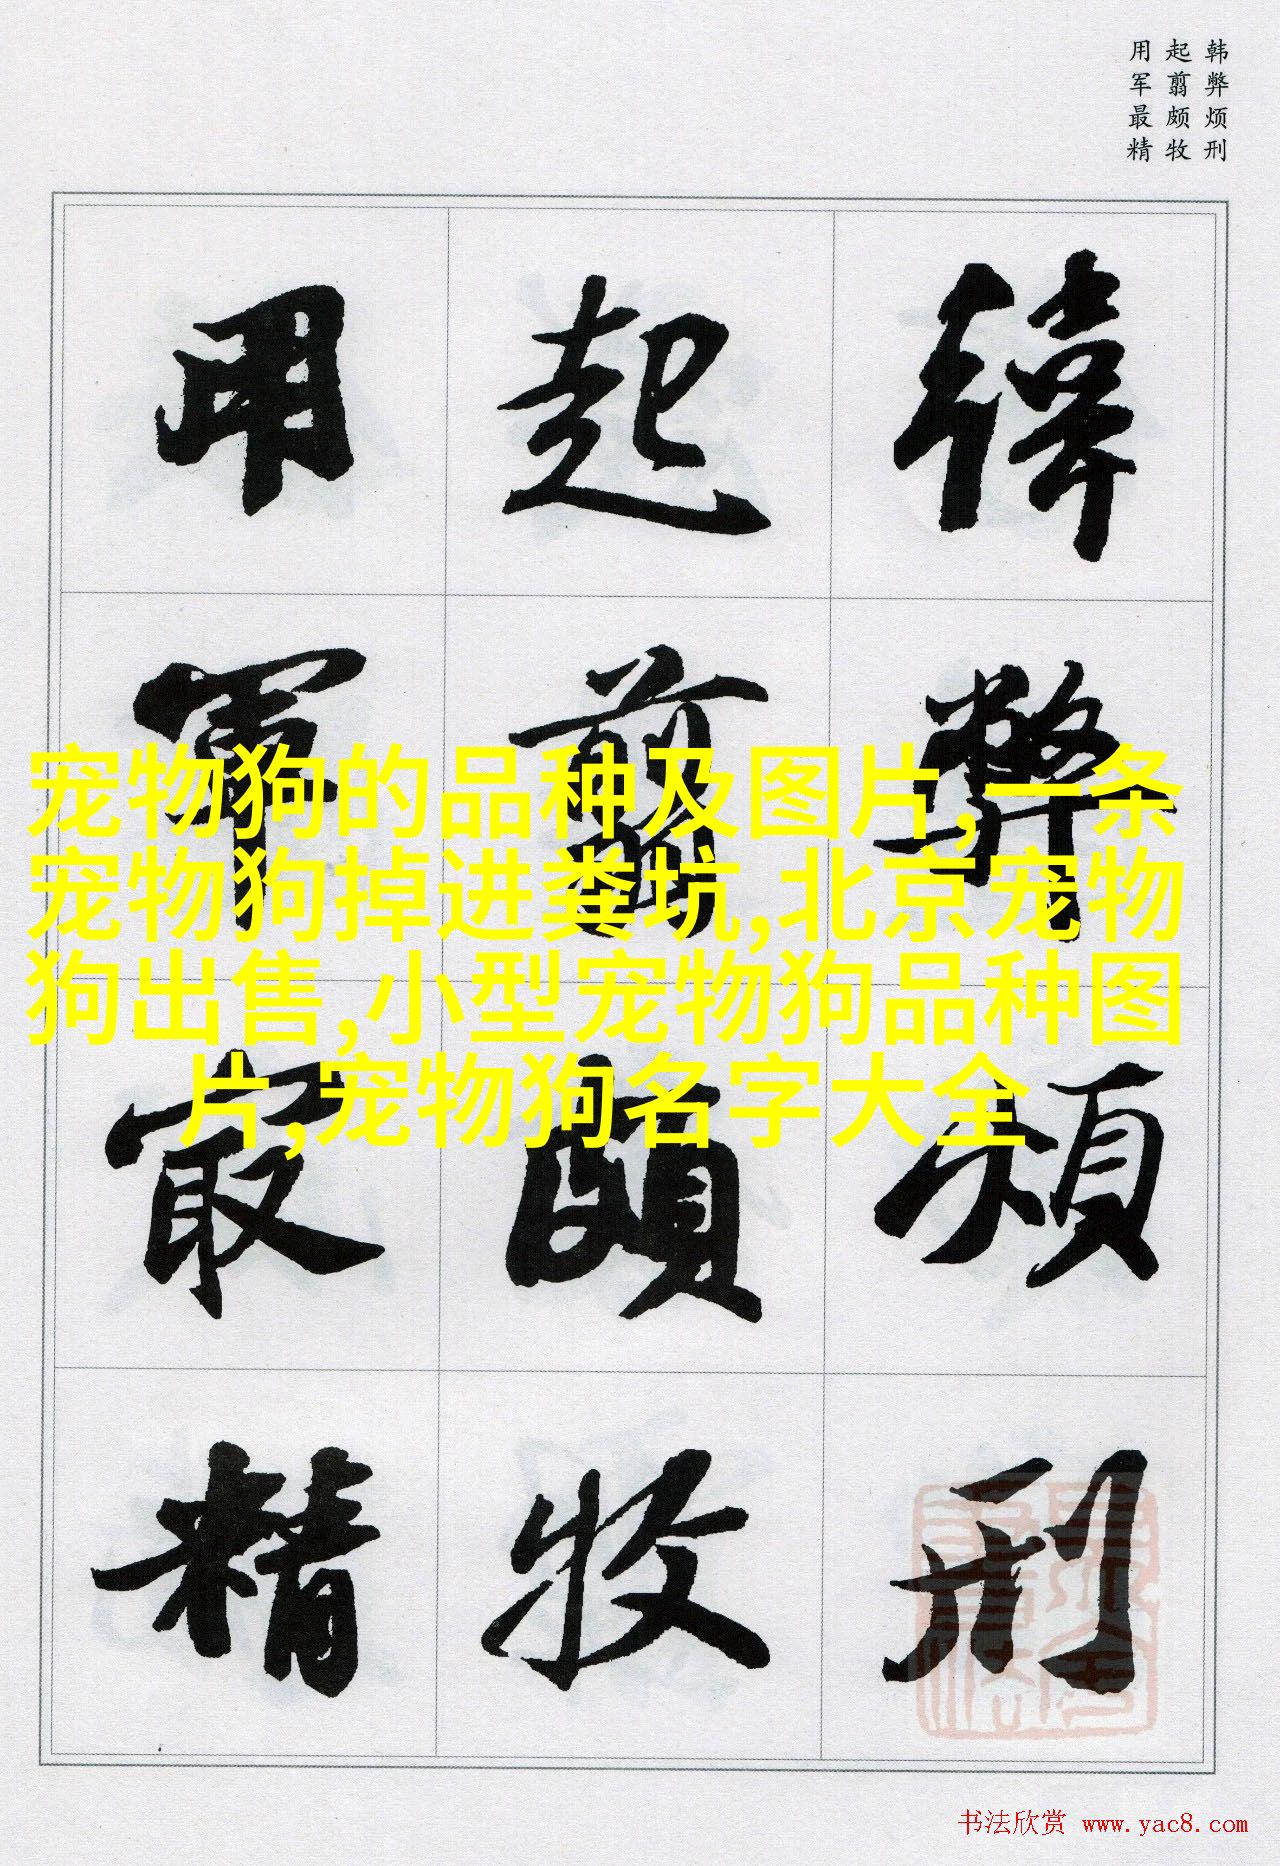 韩弊烦刑
起翦颇牧
用军最精
韓弊煩刑
起翦頗牧
用軍最精
宠物狗的品种及图片,一条
宠物狗掉进粪坑,北京宠物
狗出售,小型宠物狗品种图
片,宠物狗名字大全
书法欣赏 www.yac8.com